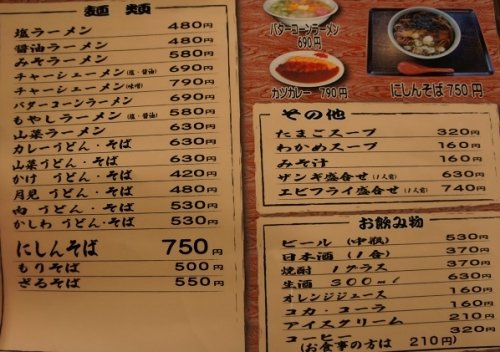 麺類
塩ラーメン 480円
醤油ラーメン 480円
みそラーメン 580円
チャーシューメン(塩・醤油) 690円
チャーシューメン(味噌) 790円
バターコーンラーメン 690円
もやしラーメン(塩・醤油) 580円
山菜ラーメン 630円
カレーうどん・そば 630円
山菜うどん・そば 630円
かけ うどん・そば 420円
月見 うどん・そば 480円
肉 うどん・そば 530円
かしわ うどん・そば 530円
にしんそば 750円
もりそば 500円
ざるそば 550円
バターコーンラーメン
690円
カツカレー 790円
にしんそば 750円
その他
たまごスープ 320円
わかめスープ 160円
みそ汁 160円
ザンギ盛合せ(1人前) 630円
エビフライ盛合せ(1人前) 740円
お飲み物
ビール (中瓶) 530円
日本酒 (1合) 370円
焼酎 1グラス 370円
生酒 300ml 630円
オレンジジュース 160円
コカ・コーラ 160円
アイスクリーム 210円
コーヒー 320円
(お食事の方は 210円)